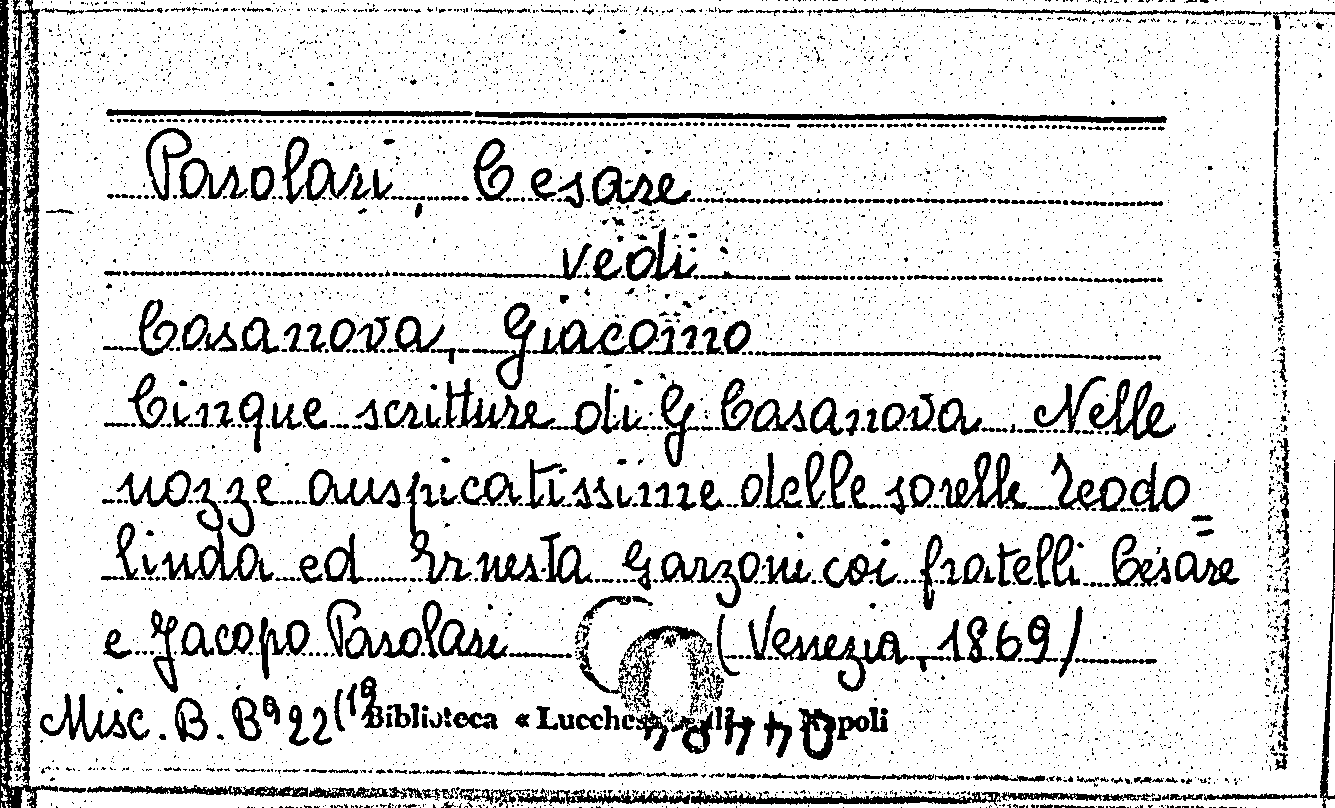 Parolari, Cesare
vedi:
Casanova, Giacomo
Cinque scritture di G Casanova. Nelle
nozze auspicatissime delle sorelle Teodo=
linda ed Ernesta Garzoni coi fratelli Cesare
e Jacopo Parolari (Venezia, 1869)
Misc. B. Bª 22(19 Biblioteca « Lucchesi Napoli